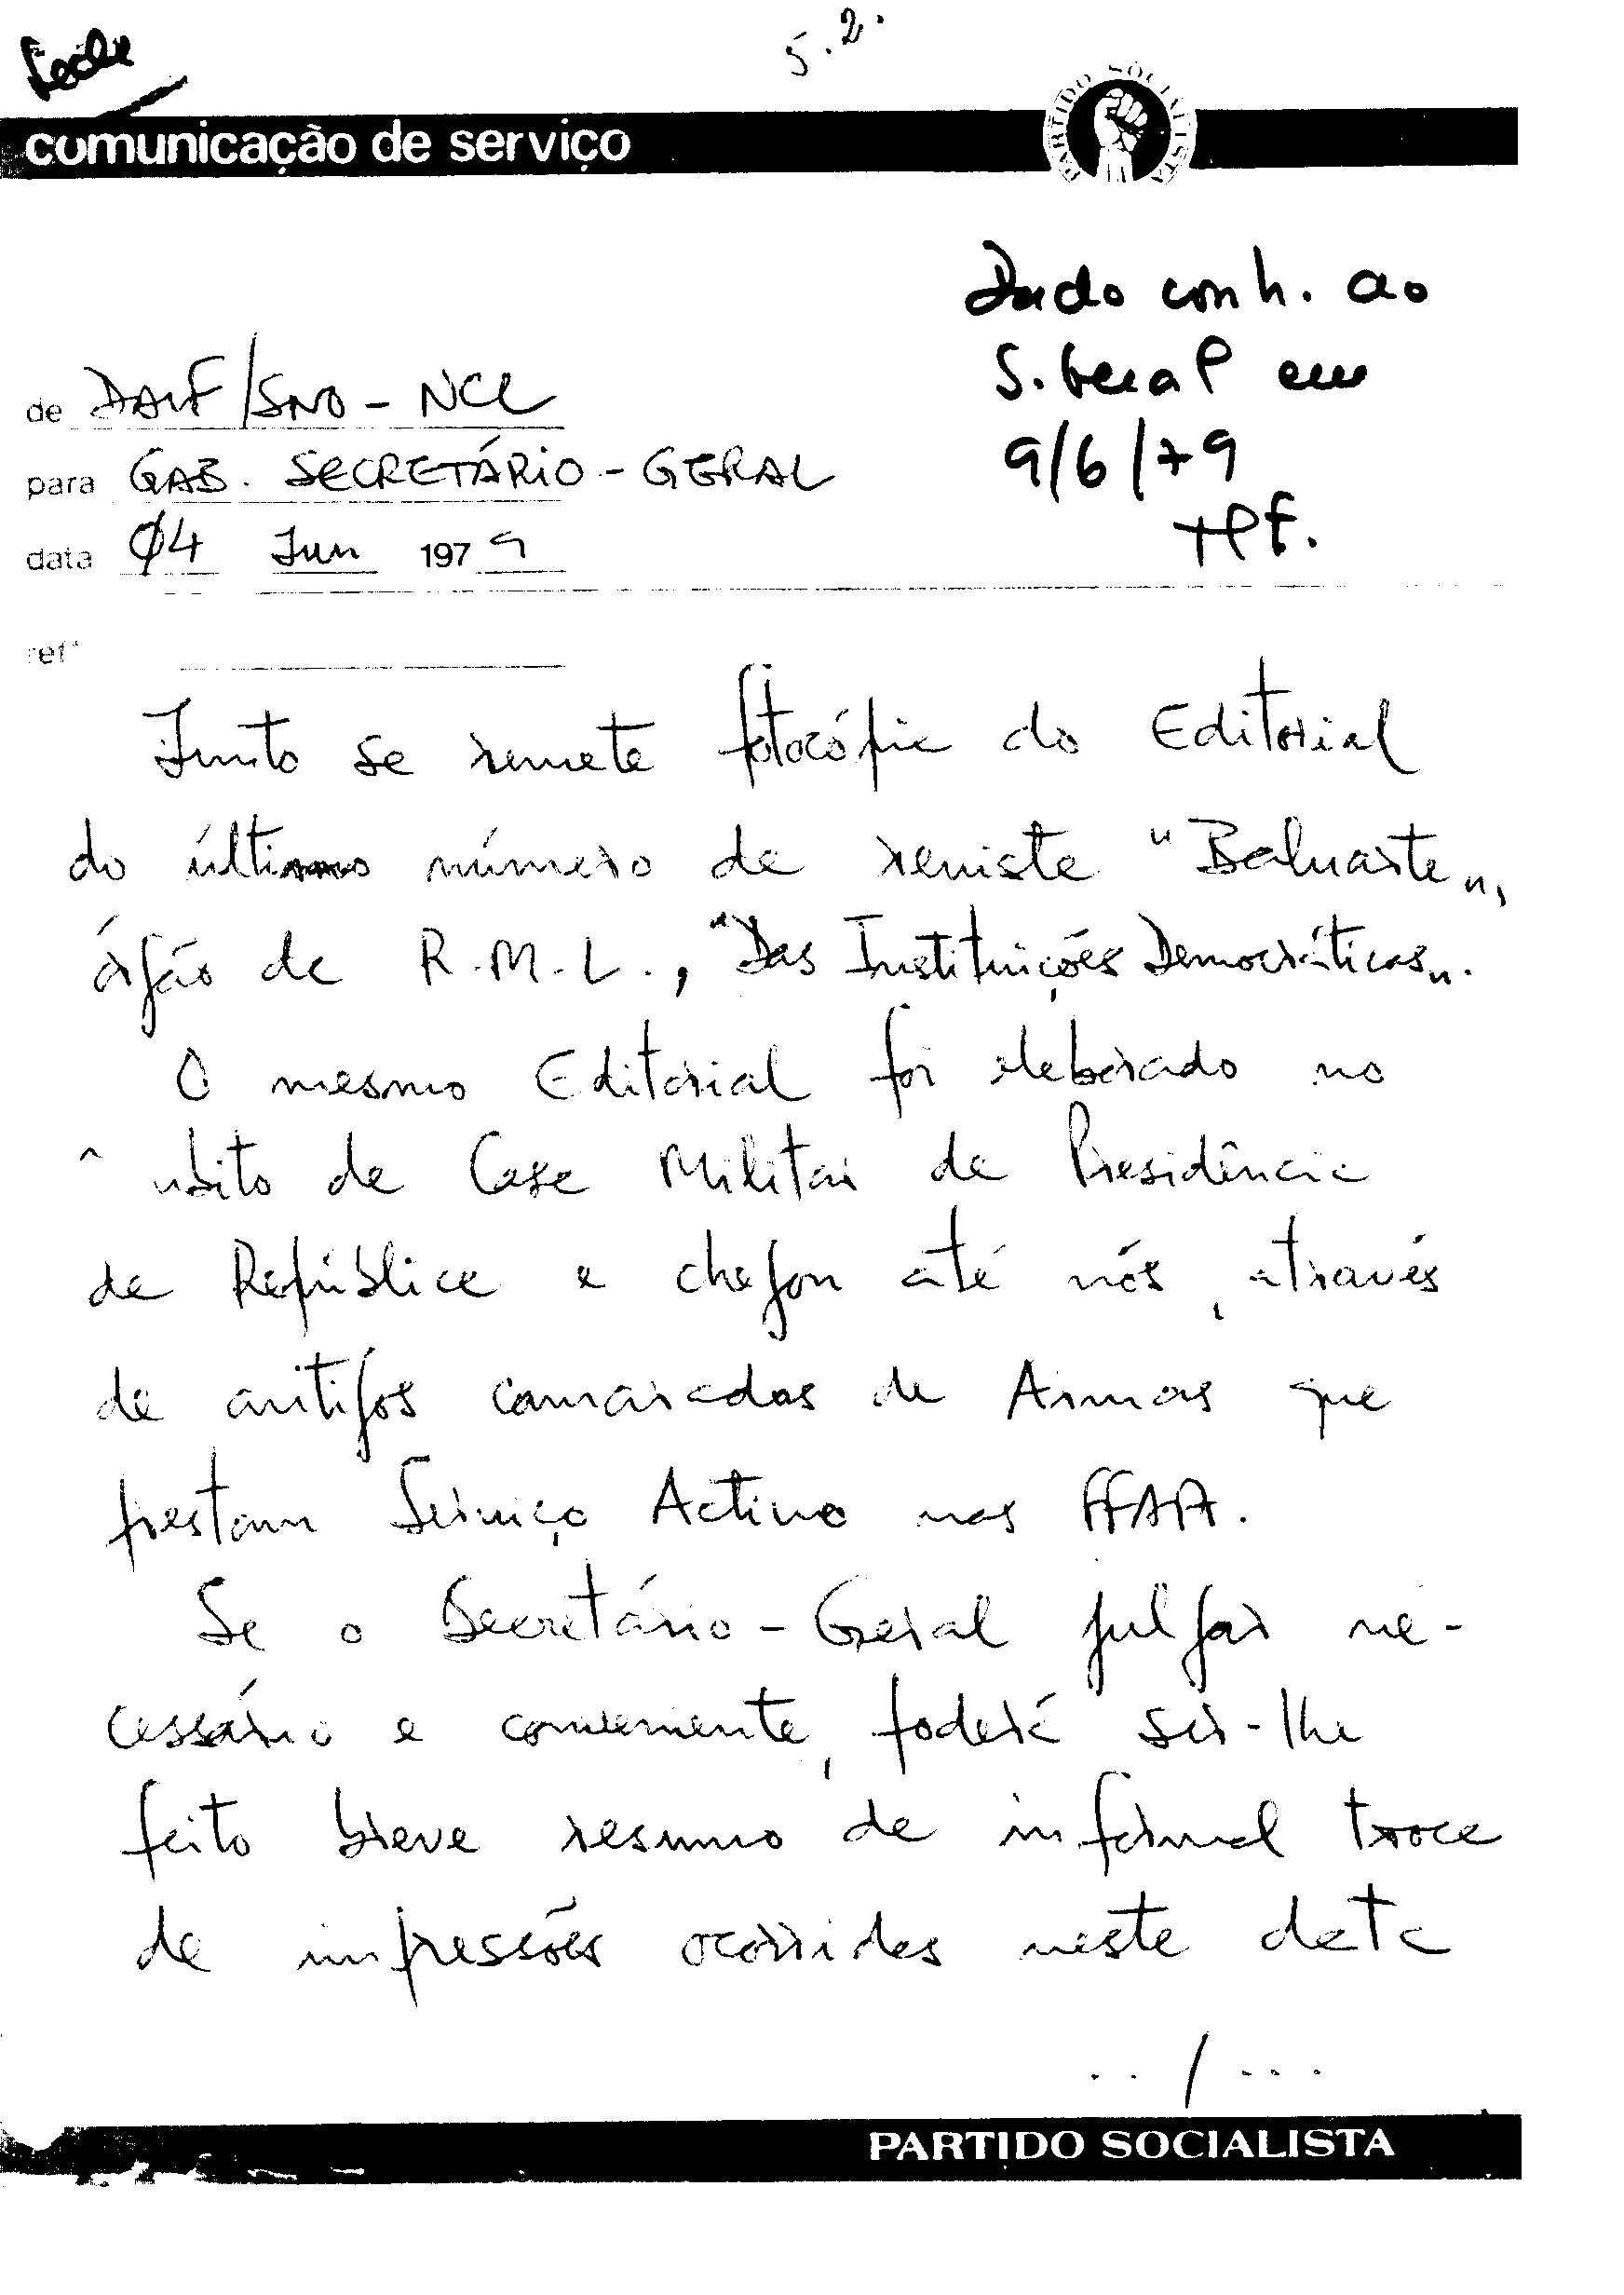 Sede
5.2.
PARTIDO SOCIALISTA
comunicação de serviço
Dado conh. ao
S. Geral em
9/6/79
HPF.
de DAIF/SNO - NCL
para GAB. SECRETÁRIO-GERAL
data 04 Jun 1979
refª
Junto se remete fotocópia do Editorial
do último número da revista "Baluarte",
órgão da R.M.L., "Das Instituições Democráticas".
O mesmo Editorial foi elaborado no
âmbito da Casa Militar da Presidência
da República e chegou até nós, através
de antigos camaradas de Armas que
prestam Serviço Activo nas FFAA.
Se o Secretário-Geral julgar ne-
cessário e conveniente, poderá ser-lhe
feito breve resumo da informal troca
de impressões ocorridas nesta data
../...
PARTIDO SOCIALISTA